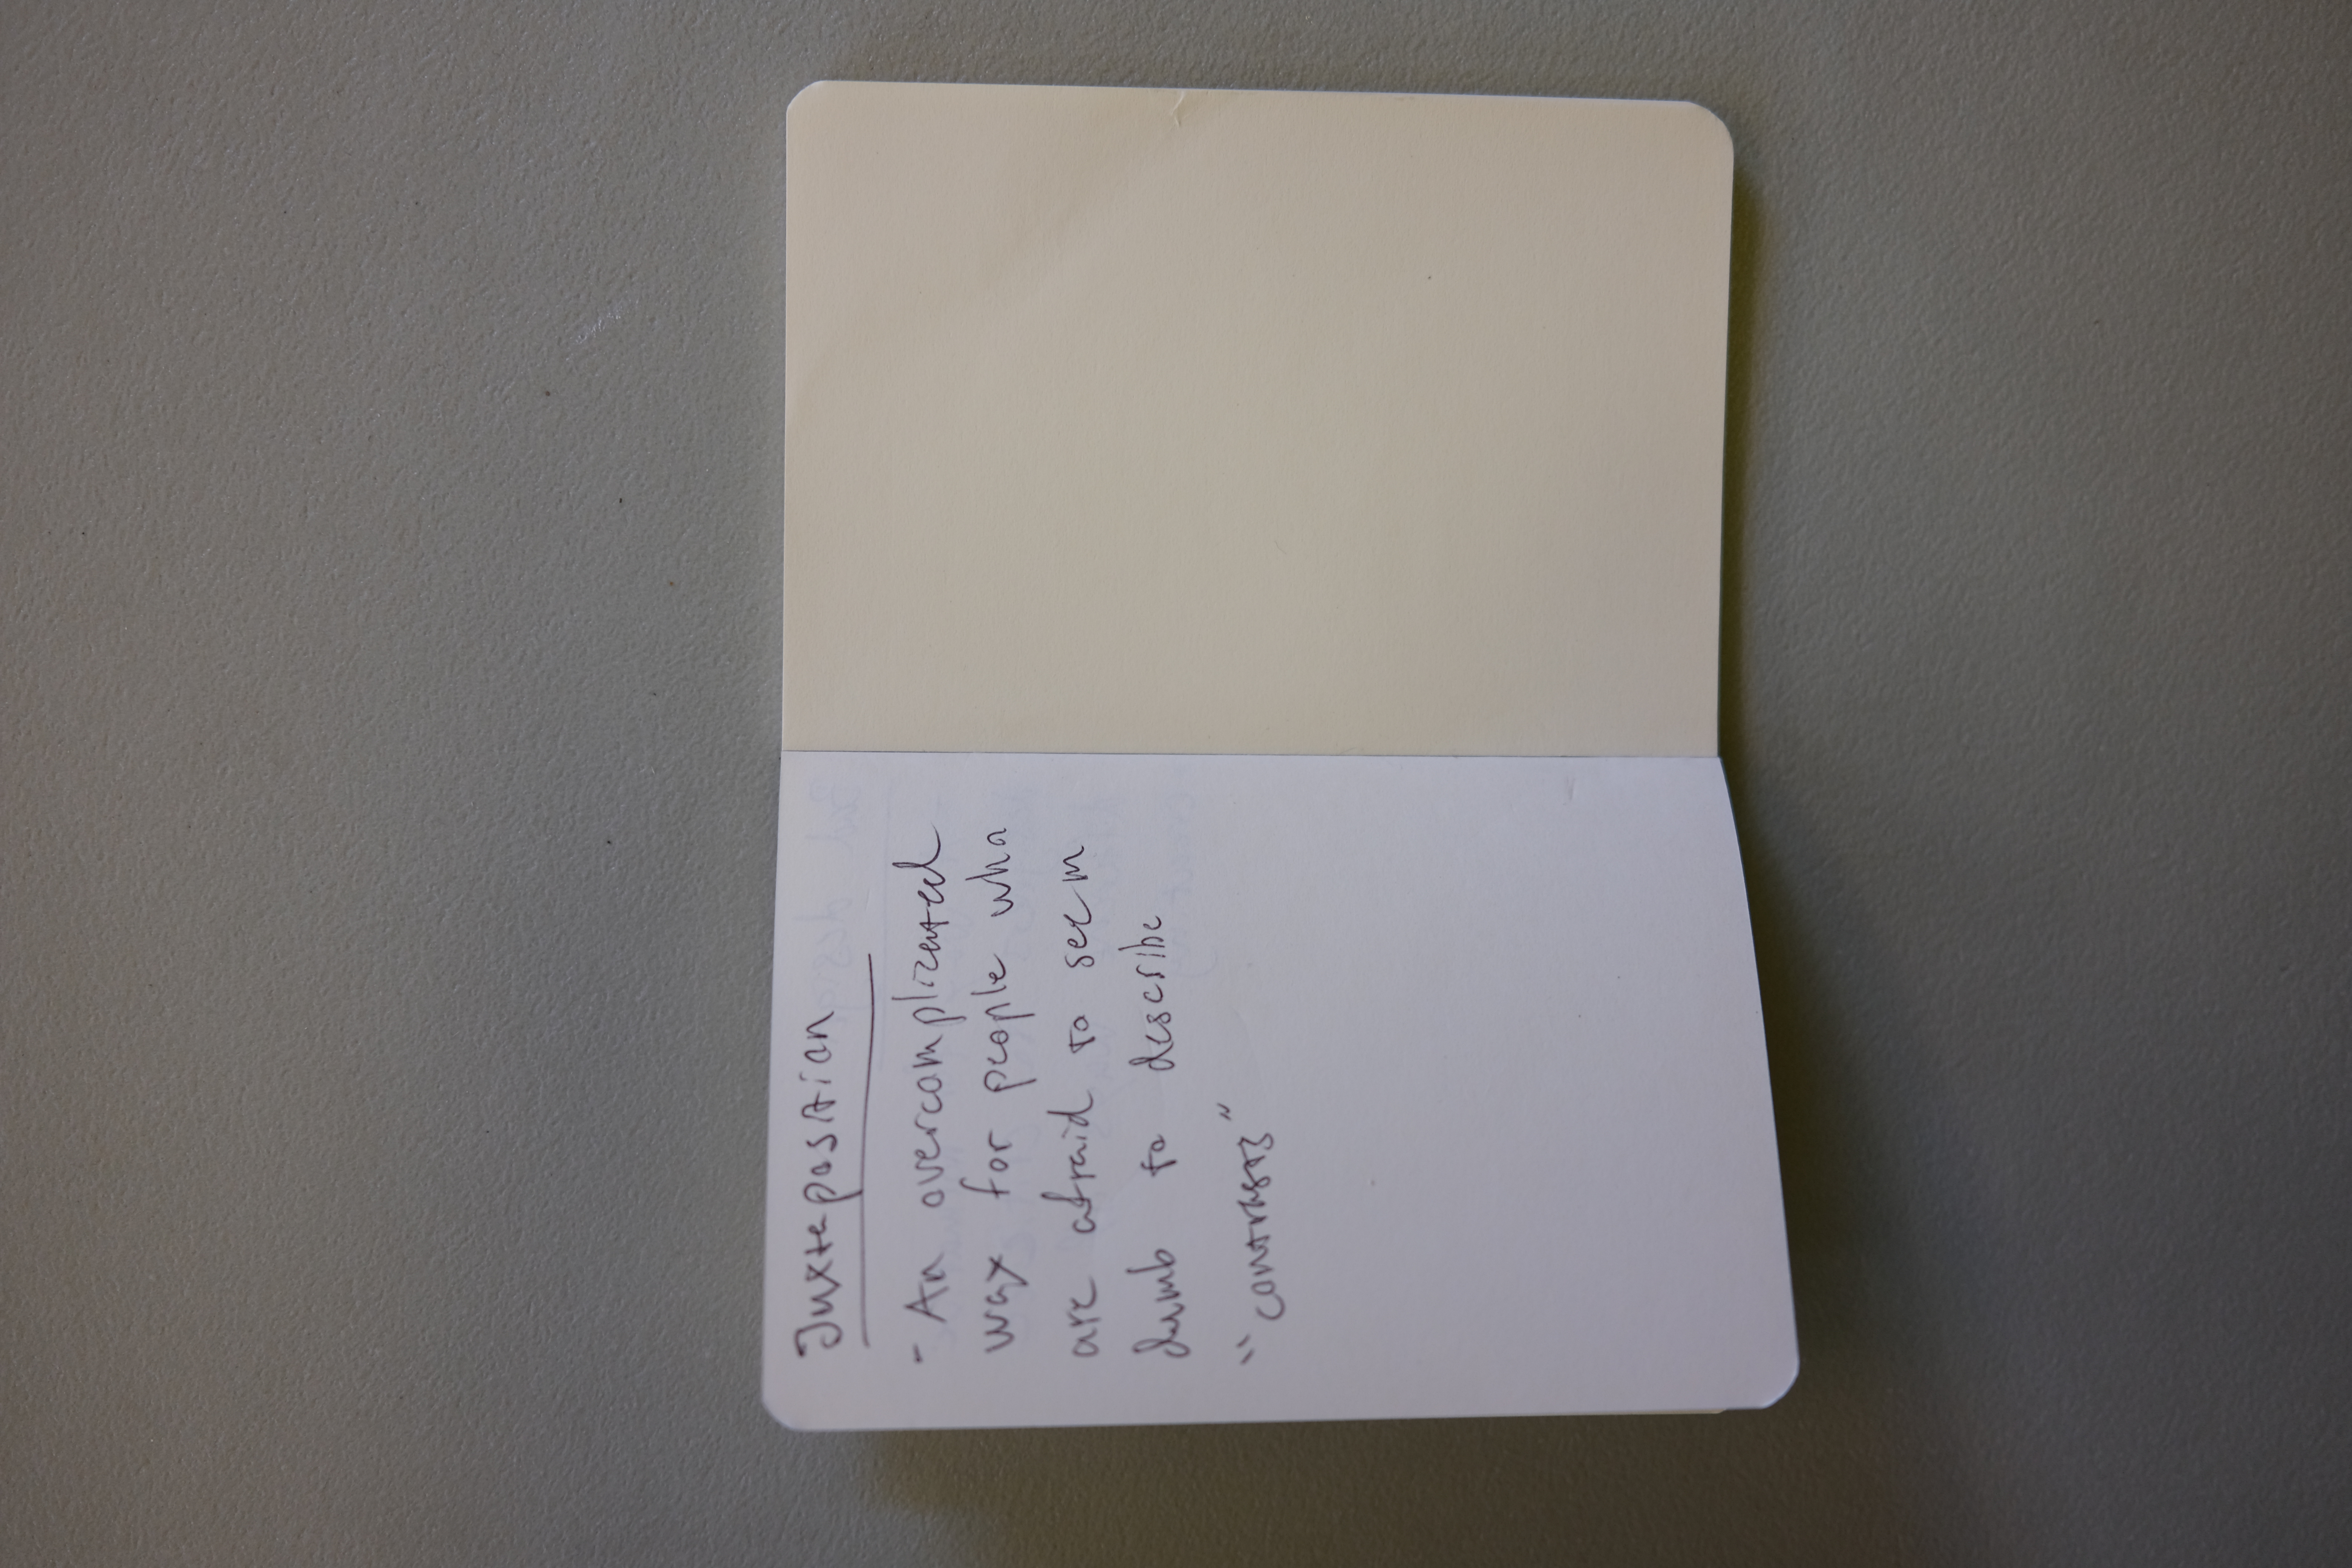 Juxtaposition
- An overcomplicated
way for people who
are afraid to seem
dumb to describe
"contrasts"